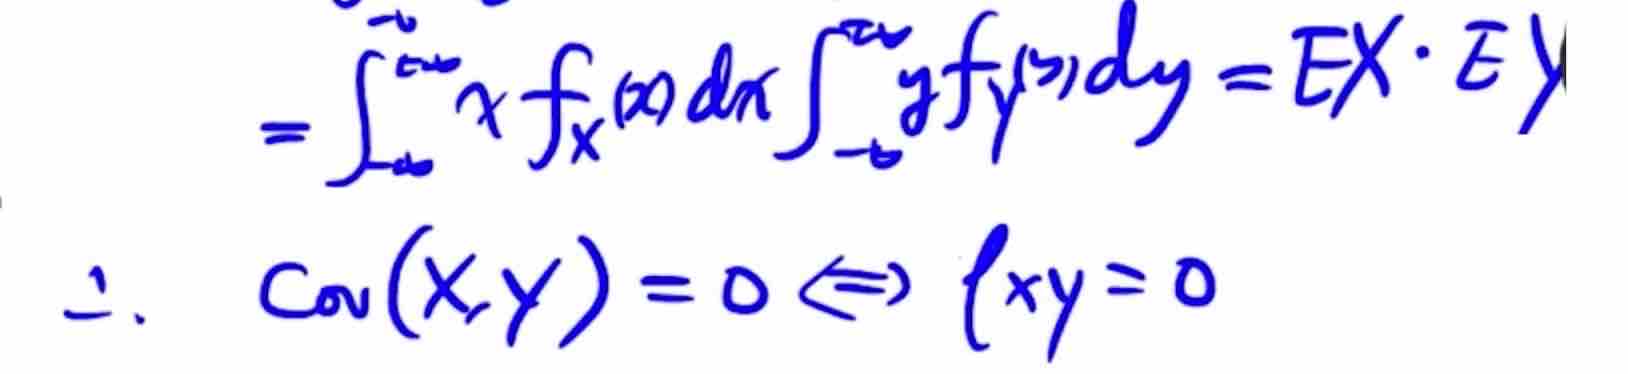 = ∫_{-∞}^{+∞} x f_X(x) dx ∫_{-∞}^{+∞} y f_Y(y) dy = EX · EY
∴ Cov(X,Y) = 0 ⟺ ρ_{XY} = 0